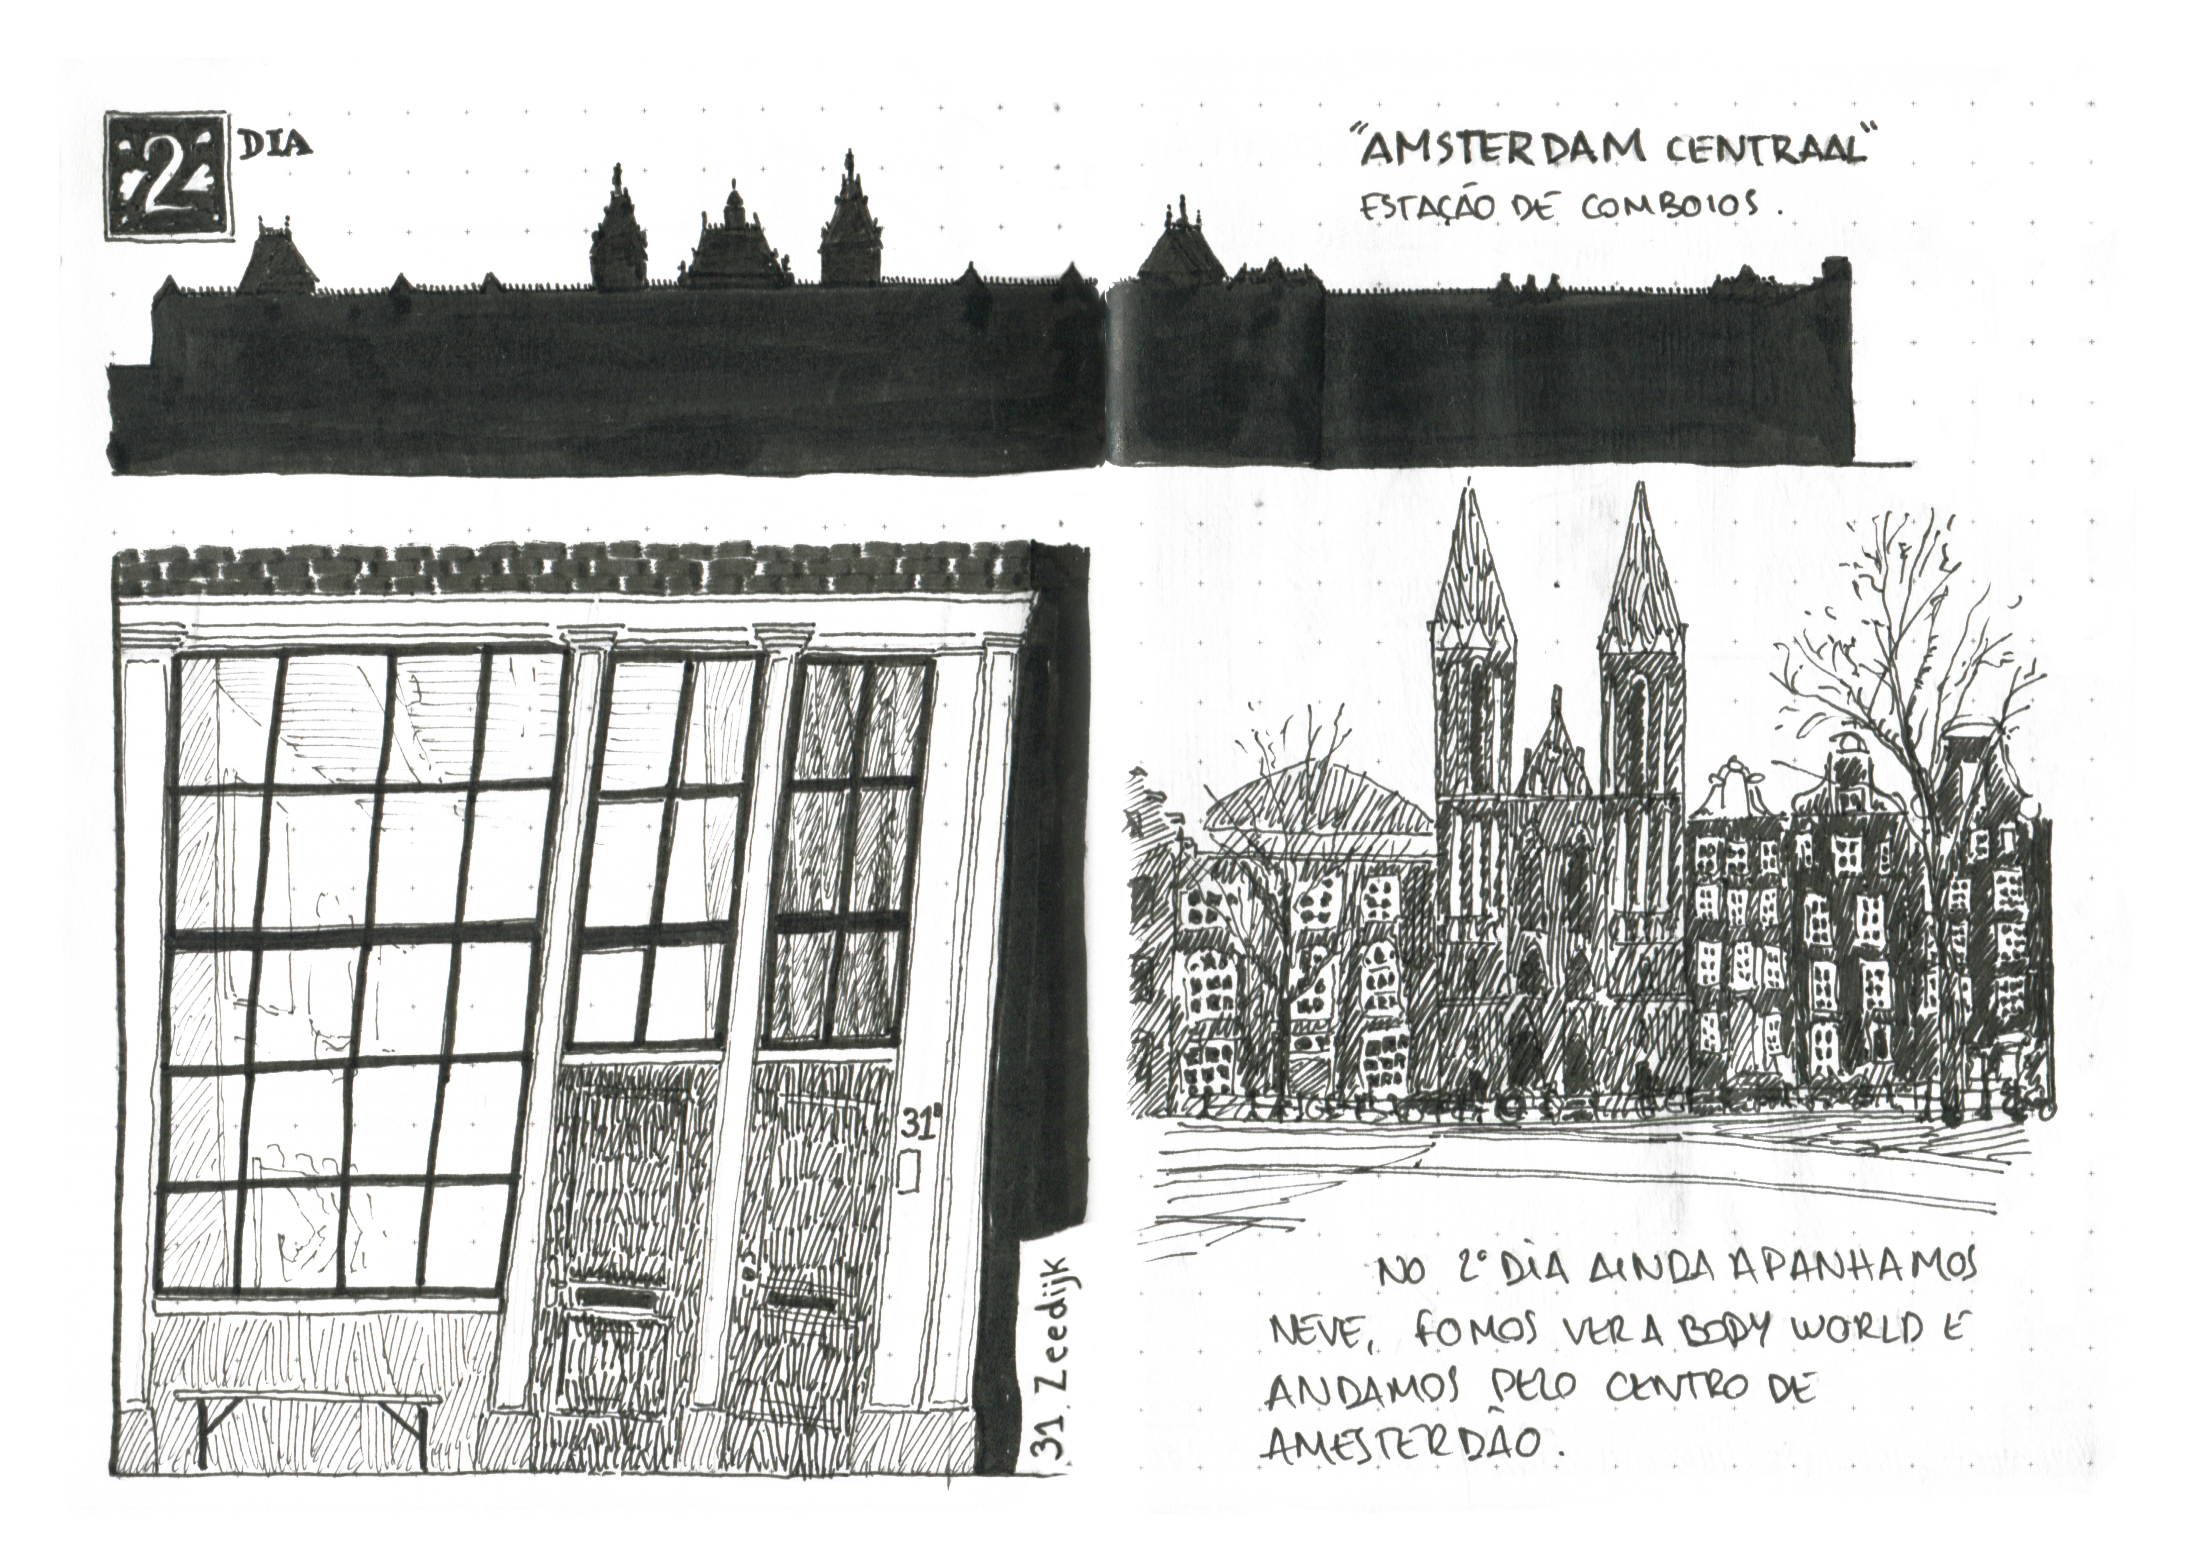 2 DIA
"AMSTERDAM CENTRAAL"
ESTAÇÃO DE COMBOIOS.
31ª
31. Zeedijk
NO 2º DIA AINDA APANHAMOS
NEVE, FOMOS VER A BODY WORLD E
ANDAMOS PELO CENTRO DE
AMESTERDÃO.